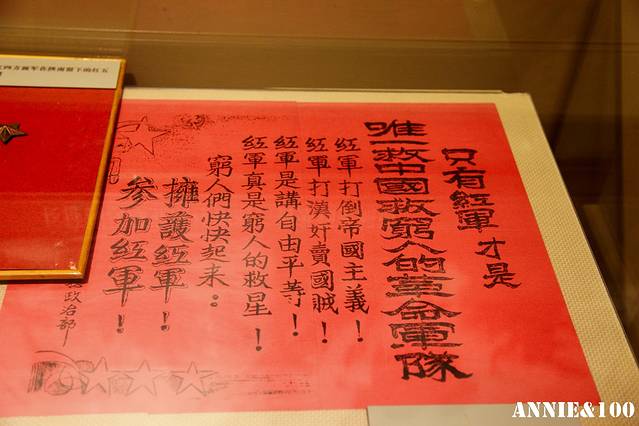 只有紅軍才是
唯一救中國救窮人的革命軍隊
紅軍打倒帝國主義！
紅軍打漢奸賣國賊！
紅軍是講自由平等！
紅軍真是窮人的救星！
窮人們快快起來：
擁護紅軍！
參加紅軍！
政治部
四方面军在陕南留下的红五
ANNIE&100